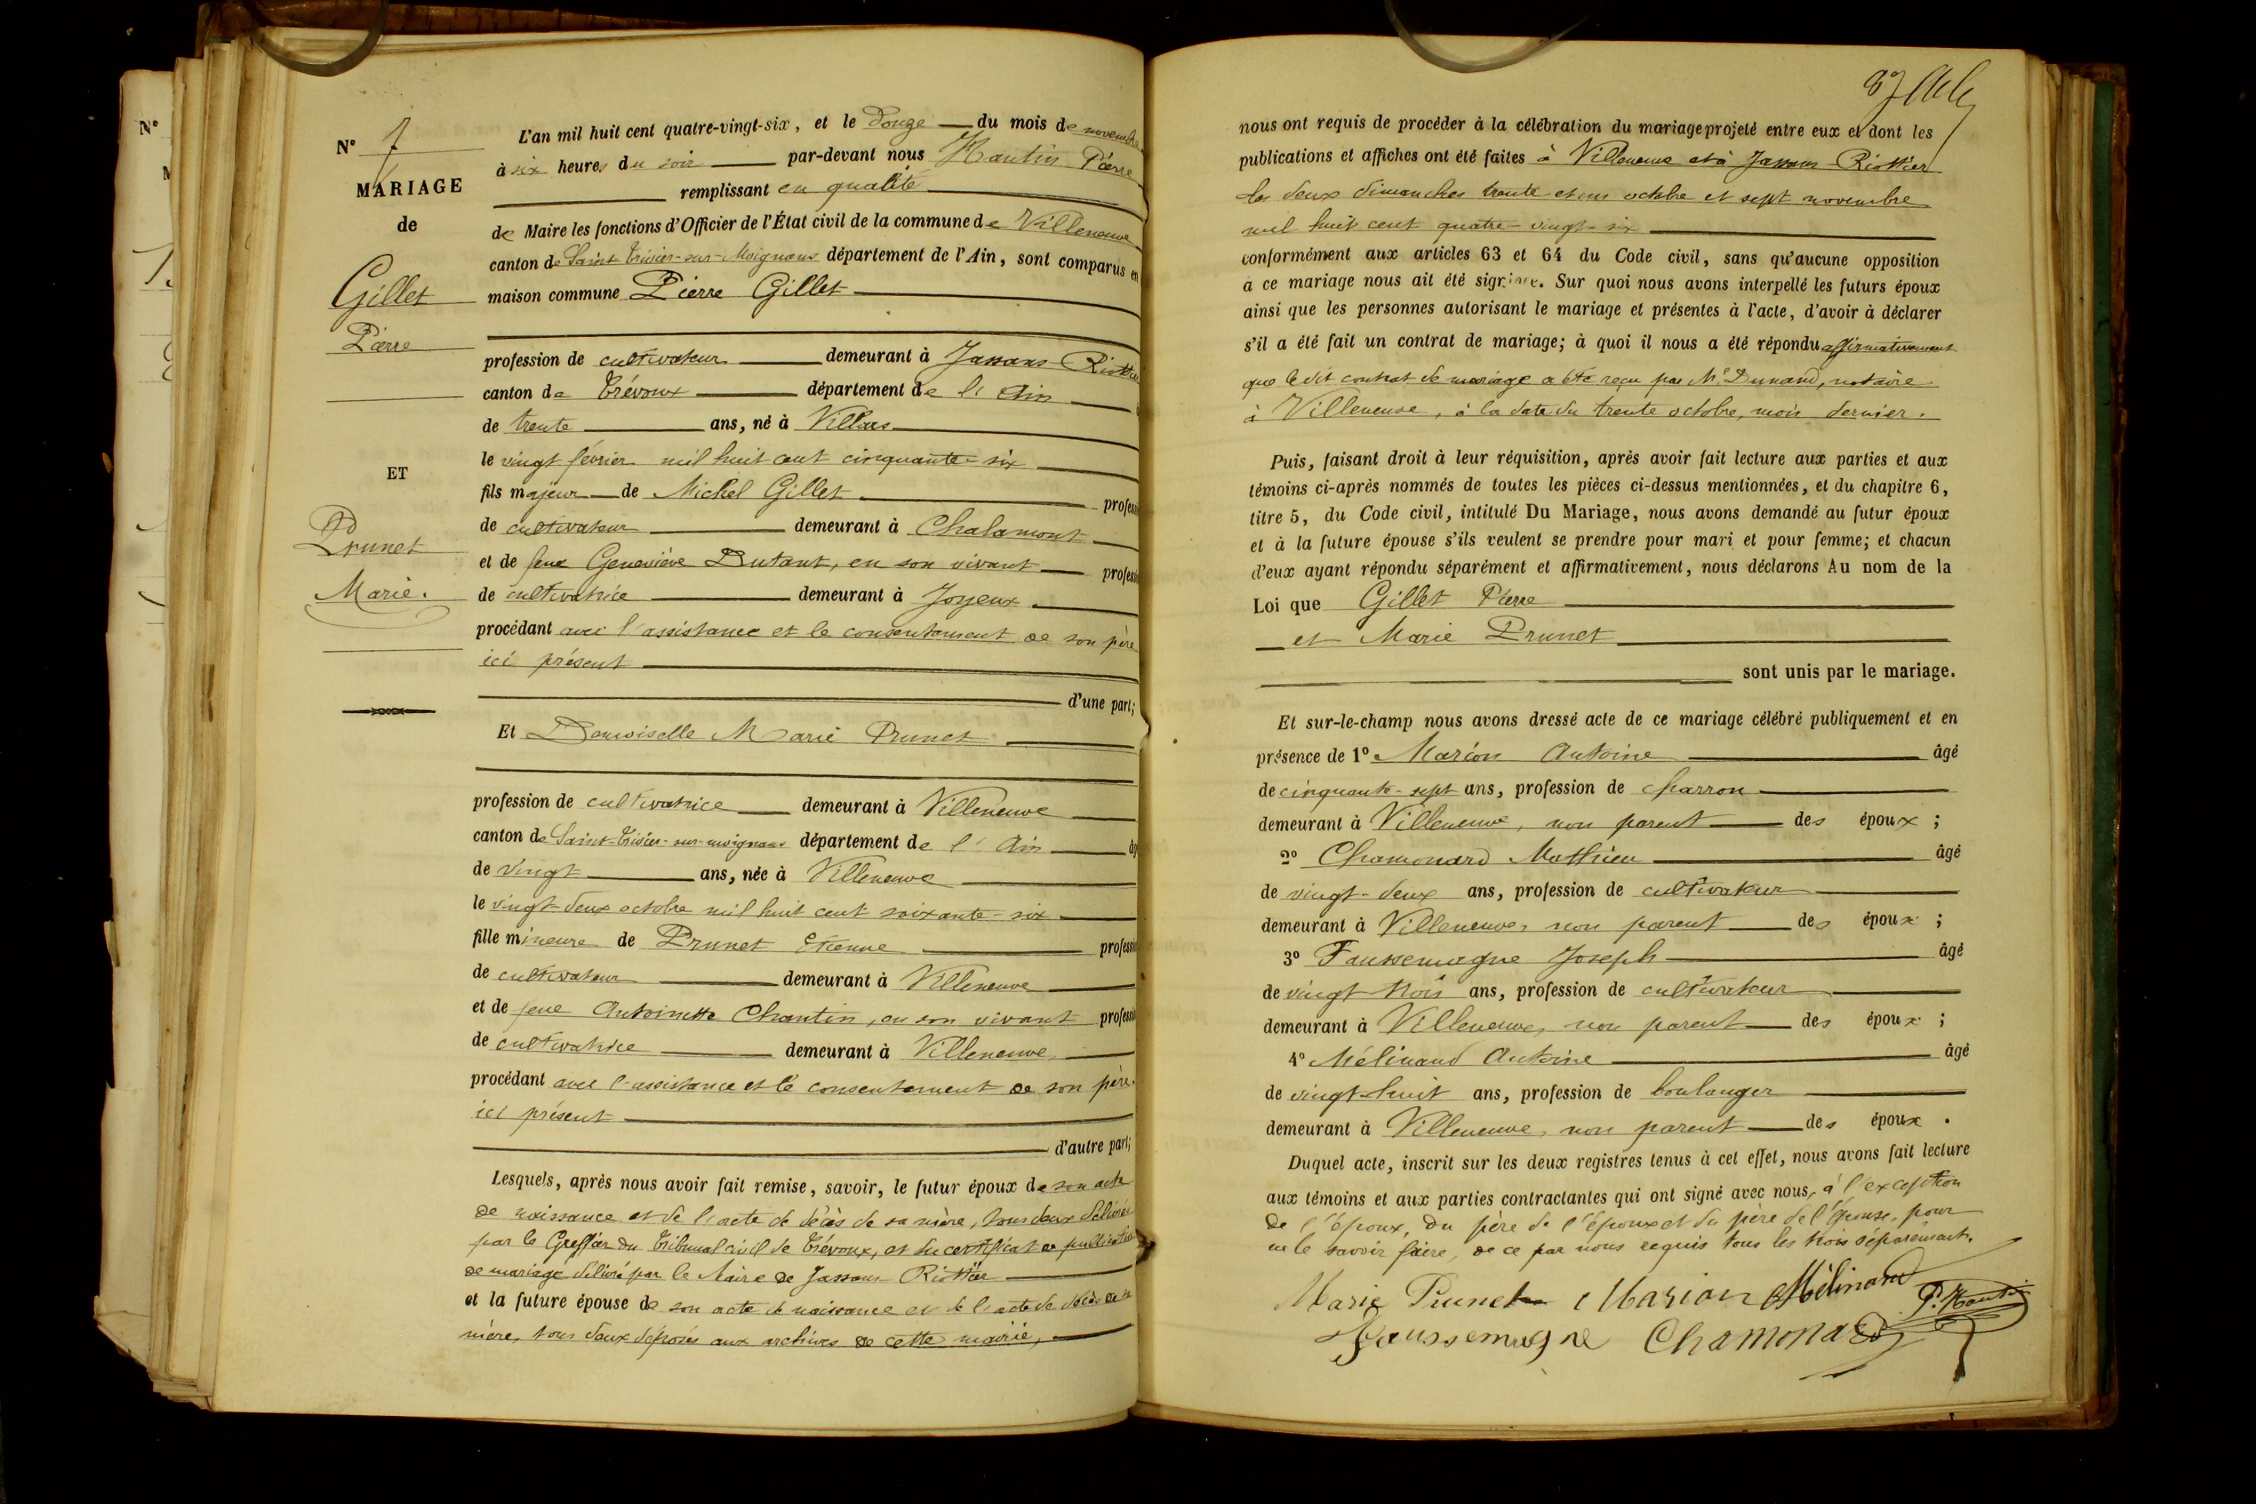 N°
N° 7
MARIAGE
de
Gillet
Pierre
ET
Prunet
Marie.
L'an mil huit cent quatre-vingt-six, et le douze du mois de novembre
à six heures du soir par-devant nous Hantin Pierre
remplissant en qualité
de Maire les fonctions d'Officier de l'État civil de la commune de Villeneuve
canton de Saint-Trivier-sur-Moignans département de l'Ain, sont comparus en
maison commune Pierre Gillet
profession de cultivateur demeurant à Jassans Riottier
canton de Trévoux département de l'Ain
de trente ans, né à Villars
le vingt février mil huit cent cinquante-six
fils majeur de Michel Gillet profess
de cultivateur demeurant à Chalamont
et de feue Geneviève Dutant, en son vivant professi
de cultivatrice demeurant à Joyeux
procédant avec l'assistance et le consentement de son père
ici présent
d'une part;
Et Demoiselle Marie Prunet
profession de cultivatrice demeurant à Villeneuve
canton de Saint-Trivier-sur-moignans département de l'Ain âg
de vingt ans, née à Villeneuve
le vingt-deux octobre mil huit cent soixante-six
fille mineure de Prunet Etienne professio
de cultivateur demeurant à Villeneuve
et de feue Antoinette Chantin, en son vivant professi
de cultivatrice demeurant à Villeneuve
procédant avec l'assistance et le consentement de son père.
ici présent
d'autre part;
Lesquels, après nous avoir fait remise, savoir, le futur époux de son acte
de naissance et de l'acte de décès de sa mère, tous deux délivrés
par le Greffier du Tribunal civil de Trévoux, et du certificat de publication
de mariage délivré par le Maire de Jassans Riottier
et la future épouse de son acte de naissance et de l'acte de décès de sa
mère, tous deux déposés aux archives de cette mairie,
37
nous ont requis de procéder à la célébration du mariage projeté entre eux et dont les
publications et affiches ont été faites à Villeneuve et à Jassans-Riottier
les deux dimanches trente et un octobre et sept novembre
mil huit cent quatre-vingt-six
conformément aux articles 63 et 64 du Code civil, sans qu'aucune opposition
à ce mariage nous ait été signifiée. Sur quoi nous avons interpellé les futurs époux
ainsi que les personnes autorisant le mariage et présentes à l'acte, d'avoir à déclarer
s'il a été fait un contrat de mariage; à quoi il nous a été répondu affirmativement
que le dit contrat de mariage a été reçu par Me Dunand, notaire
à Villeneuve, à la date du trente octobre, mois dernier.
Puis, faisant droit à leur réquisition, après avoir fait lecture aux parties et aux
témoins ci-après nommés de toutes les pièces ci-dessus mentionnées, et du chapitre 6,
titre 5, du Code civil, intitulé Du Mariage, nous avons demandé au futur époux
et à la future épouse s'ils veulent se prendre pour mari et pour femme; et chacun
d'eux ayant répondu séparément et affirmativement, nous déclarons Au nom de la
Loi que Gillet Pierre
et Marie Prunet
sont unis par le mariage.
Et sur-le-champ nous avons dressé acte de ce mariage célébré publiquement et en
présence de 1° Marion Antoine âgé
de cinquante-sept ans, profession de charron
demeurant à Villeneuve, non parent des époux;
2° Chamonard Mathieu âgé
de vingt-deux ans, profession de cultivateur
demeurant à Villeneuve, non parent des époux;
3° Faussemagne Joseph âgé
de vingt trois ans, profession de cultivateur
demeurant à Villeneuve, non parent des époux;
4° Mélinand Antoine âgé
de vingt-huit ans, profession de boulanger
demeurant à Villeneuve, non parent des époux.
Duquel acte, inscrit sur les deux registres tenus à cet effet, nous avons fait lecture
aux témoins et aux parties contractantes qui ont signé avec nous, à l'exception
de l'époux, du père de l'époux et du père de l'épouse, pour
ne le savoir faire, de ce par nous requis tous les trois séparément.
Marie Prunet Marion Mélinand P. Hantin
Faussemagne Chamonard